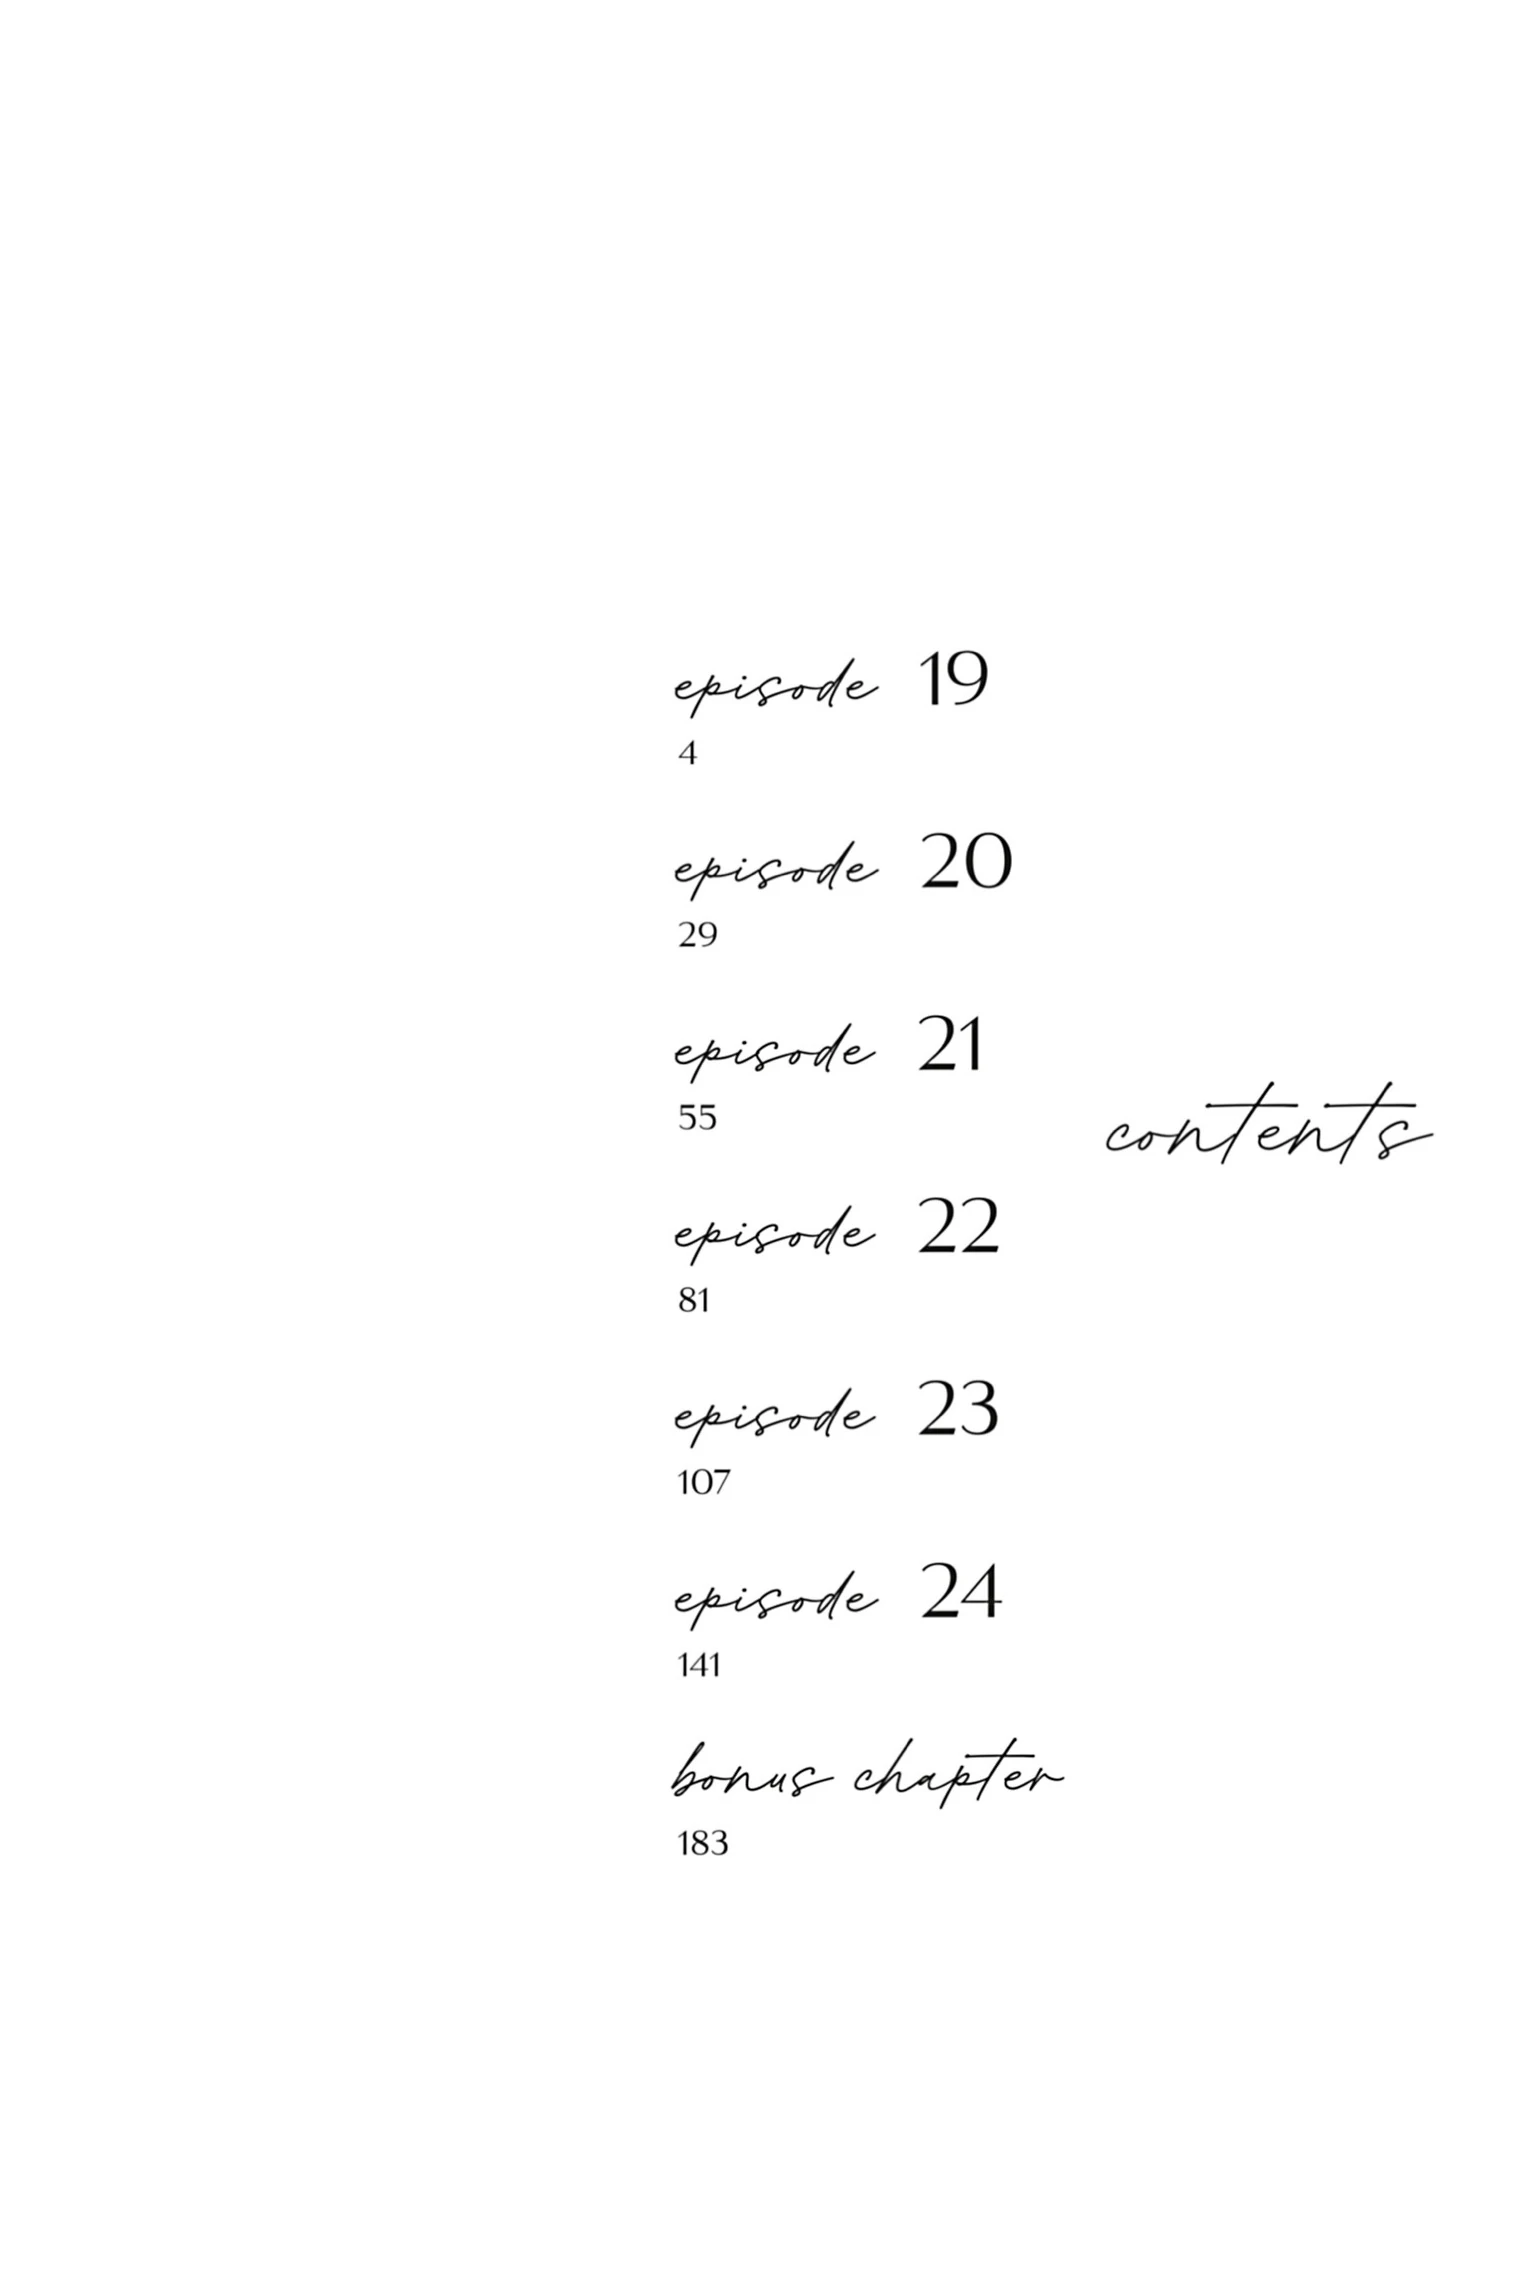 contents
episode 19
4
episode 20
29
episode 21
55
episode 22
81
episode 23
107
episode 24
141
bonus chapter
183